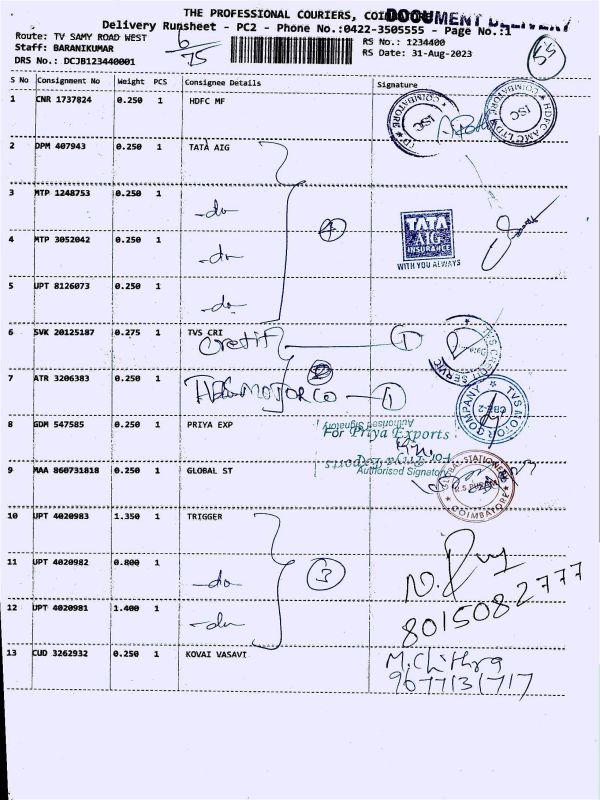 THE PROFESSIONAL COURIERS, DOCUMENT DELIVERY
Delivery Runsheet - PC2 - Phone No.:0422-3505555 - Page No.:1
Route: TV SAMY ROAD WEST
6/75
RS No.: 1234400
Staff: BARANIKUMAR
RS Date: 31-Aug-2023
DRS No.: DCJB123440001
S No Consignment No Weight PCS Consignee Details Signature
1 CNR 1737824 0.250 1 HDFC MF
COIMBATORE ISC
HDFC AMC LTD COIMBATORE ISC
2 DPM 407943 0.250 1 TATA AIG
3 MTP 1248753 0.250 1 -do-
4
TATA
AIG
INSURANCE
WITH YOU ALWAYS
4 MTP 3052042 0.250 1 -do-
5 UPT 8126073 0.250 1 -do-
6 SVK 20125187 0.275 1 TVS CRI
Credit 1
TVS CREDIT SERVIC
7 ATR 3206383 0.250 1
MOTOR CO 1
2
TVS MOTOR COMPANY CBE-2
8 GDM 547585 0.250 1 PRIYA EXP
Authorised Signatory
For Priya Exports
For Priya Exports
Authorised Signatory
9 MAA 860731818 0.250 1 GLOBAL ST
GLOBAL STATIONERY R.S.PURAM COIMBATORE
10 UPT 4020983 1.350 1 TRIGGER
11 UPT 4020982 0.800 1 -do-
3
12 UPT 4020981 1.400 1 -do-
8015082777
13 CUD 3262932 0.250 1 KOVAI VASAVI
M.Chithra
9677131717